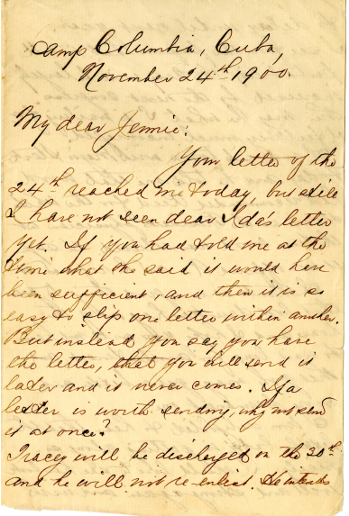 Camp Columbia, Cuba,
November 24th 1900.
My dear Jennie:
Your letter of the
24th reached me today, but still
I have not seen dear Ida's letter
yet. If you had told me at the
time what she said it would have
been sufficient, and then it is so
easy to slip one letter within another.
But instead you say you have
the letter, that you will send it
later and it never comes. If a
letter is worth sending, why not send
it at once?
Tracey will be discharged on the
and he will not re-enlist. He intends